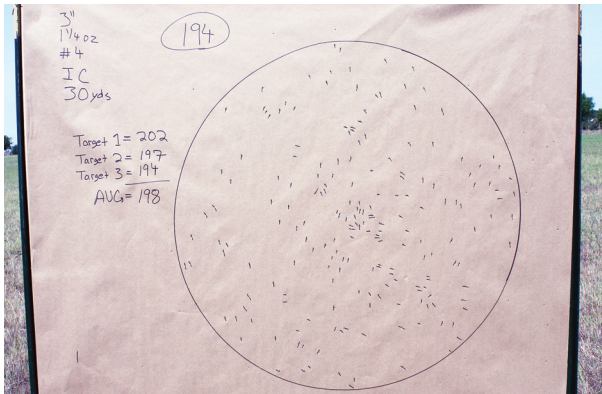 3"
1 1/4 oz
#4
IC
30 yds
194
Target 1 = 202
Target 2 = 197
Target 3 = 194
AVG = 198